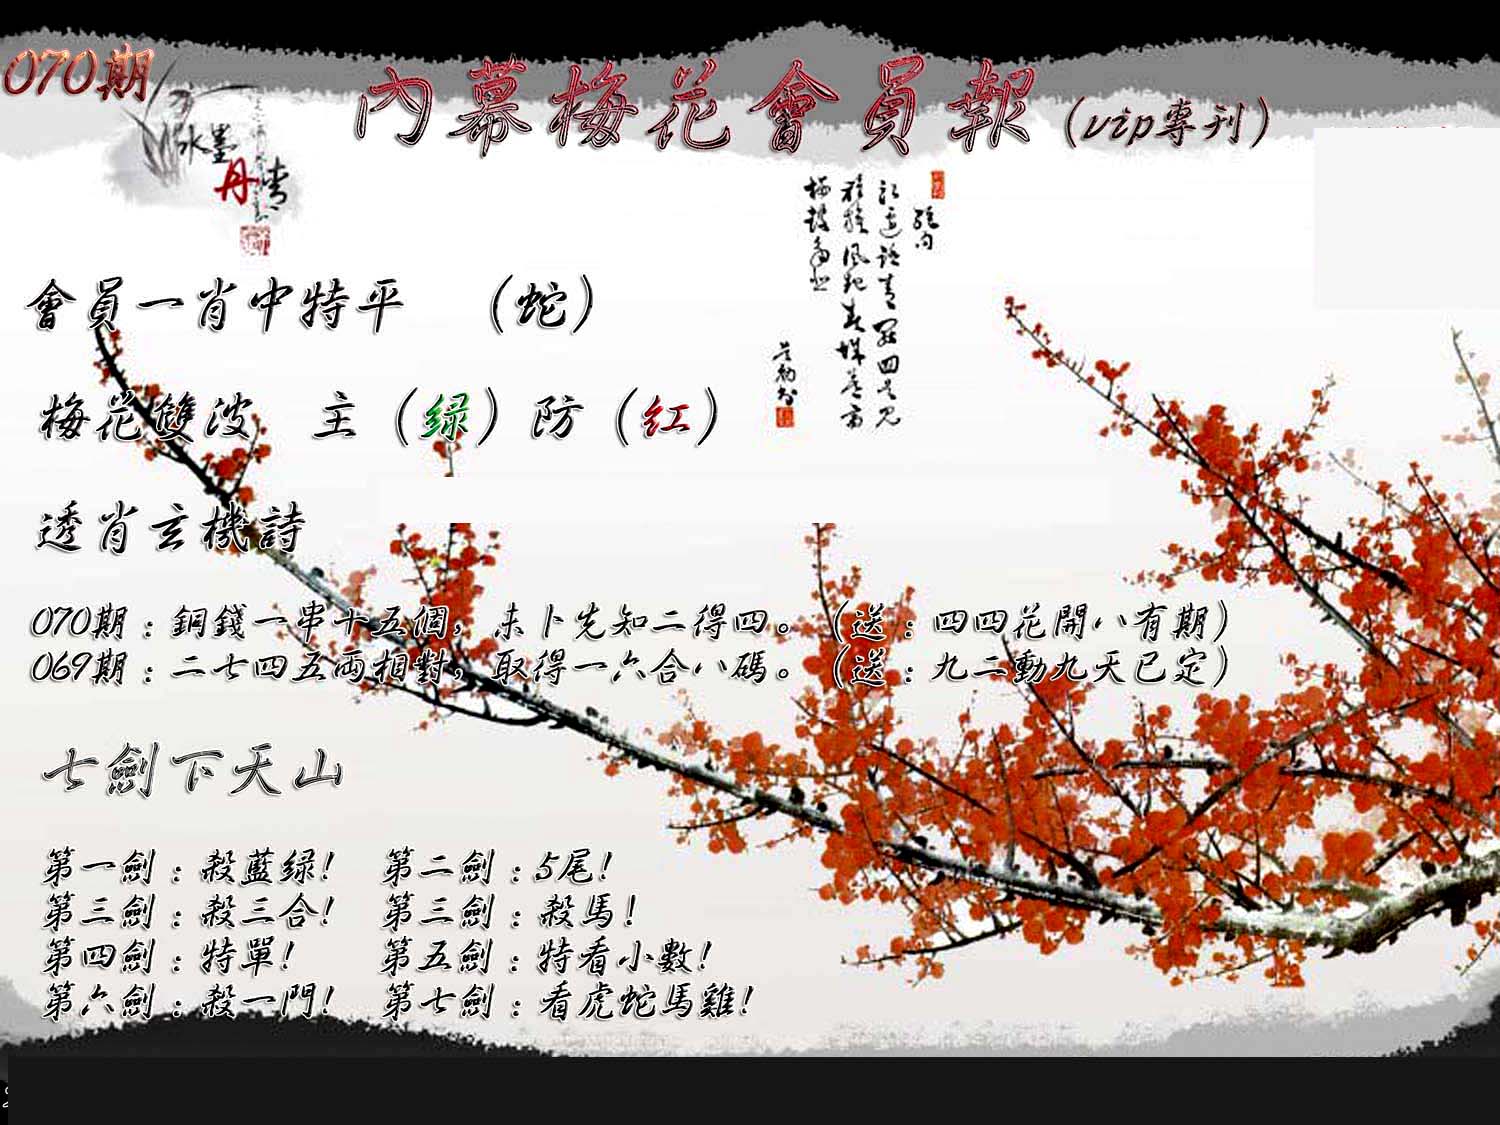 070期
內幕梅花會員報(vip專刊)
水墨
丹青
會員一肖中特平 (蛇)
梅花雙波 主(绿)防(红)
透肖玄機詩
070期:銅錢一串十五個,未卜先知二得四。(送:四四花開八有期)
069期:二七四五兩相對,取得一六合八碼。(送:九二動九天已定)
七劍下天山
第一劍:殺藍绿! 第二劍:5尾!
第三劍:殺三合! 第三劍:殺馬!
第四劍:特單! 第五劍:特看小數!
第六劍:殺一門! 第七劍:看虎蛇馬雞!